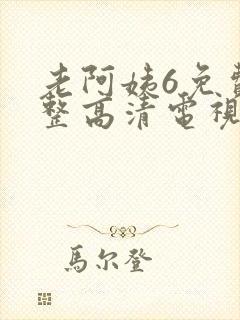 老阿姨6免費
整高清電視
馬尔登